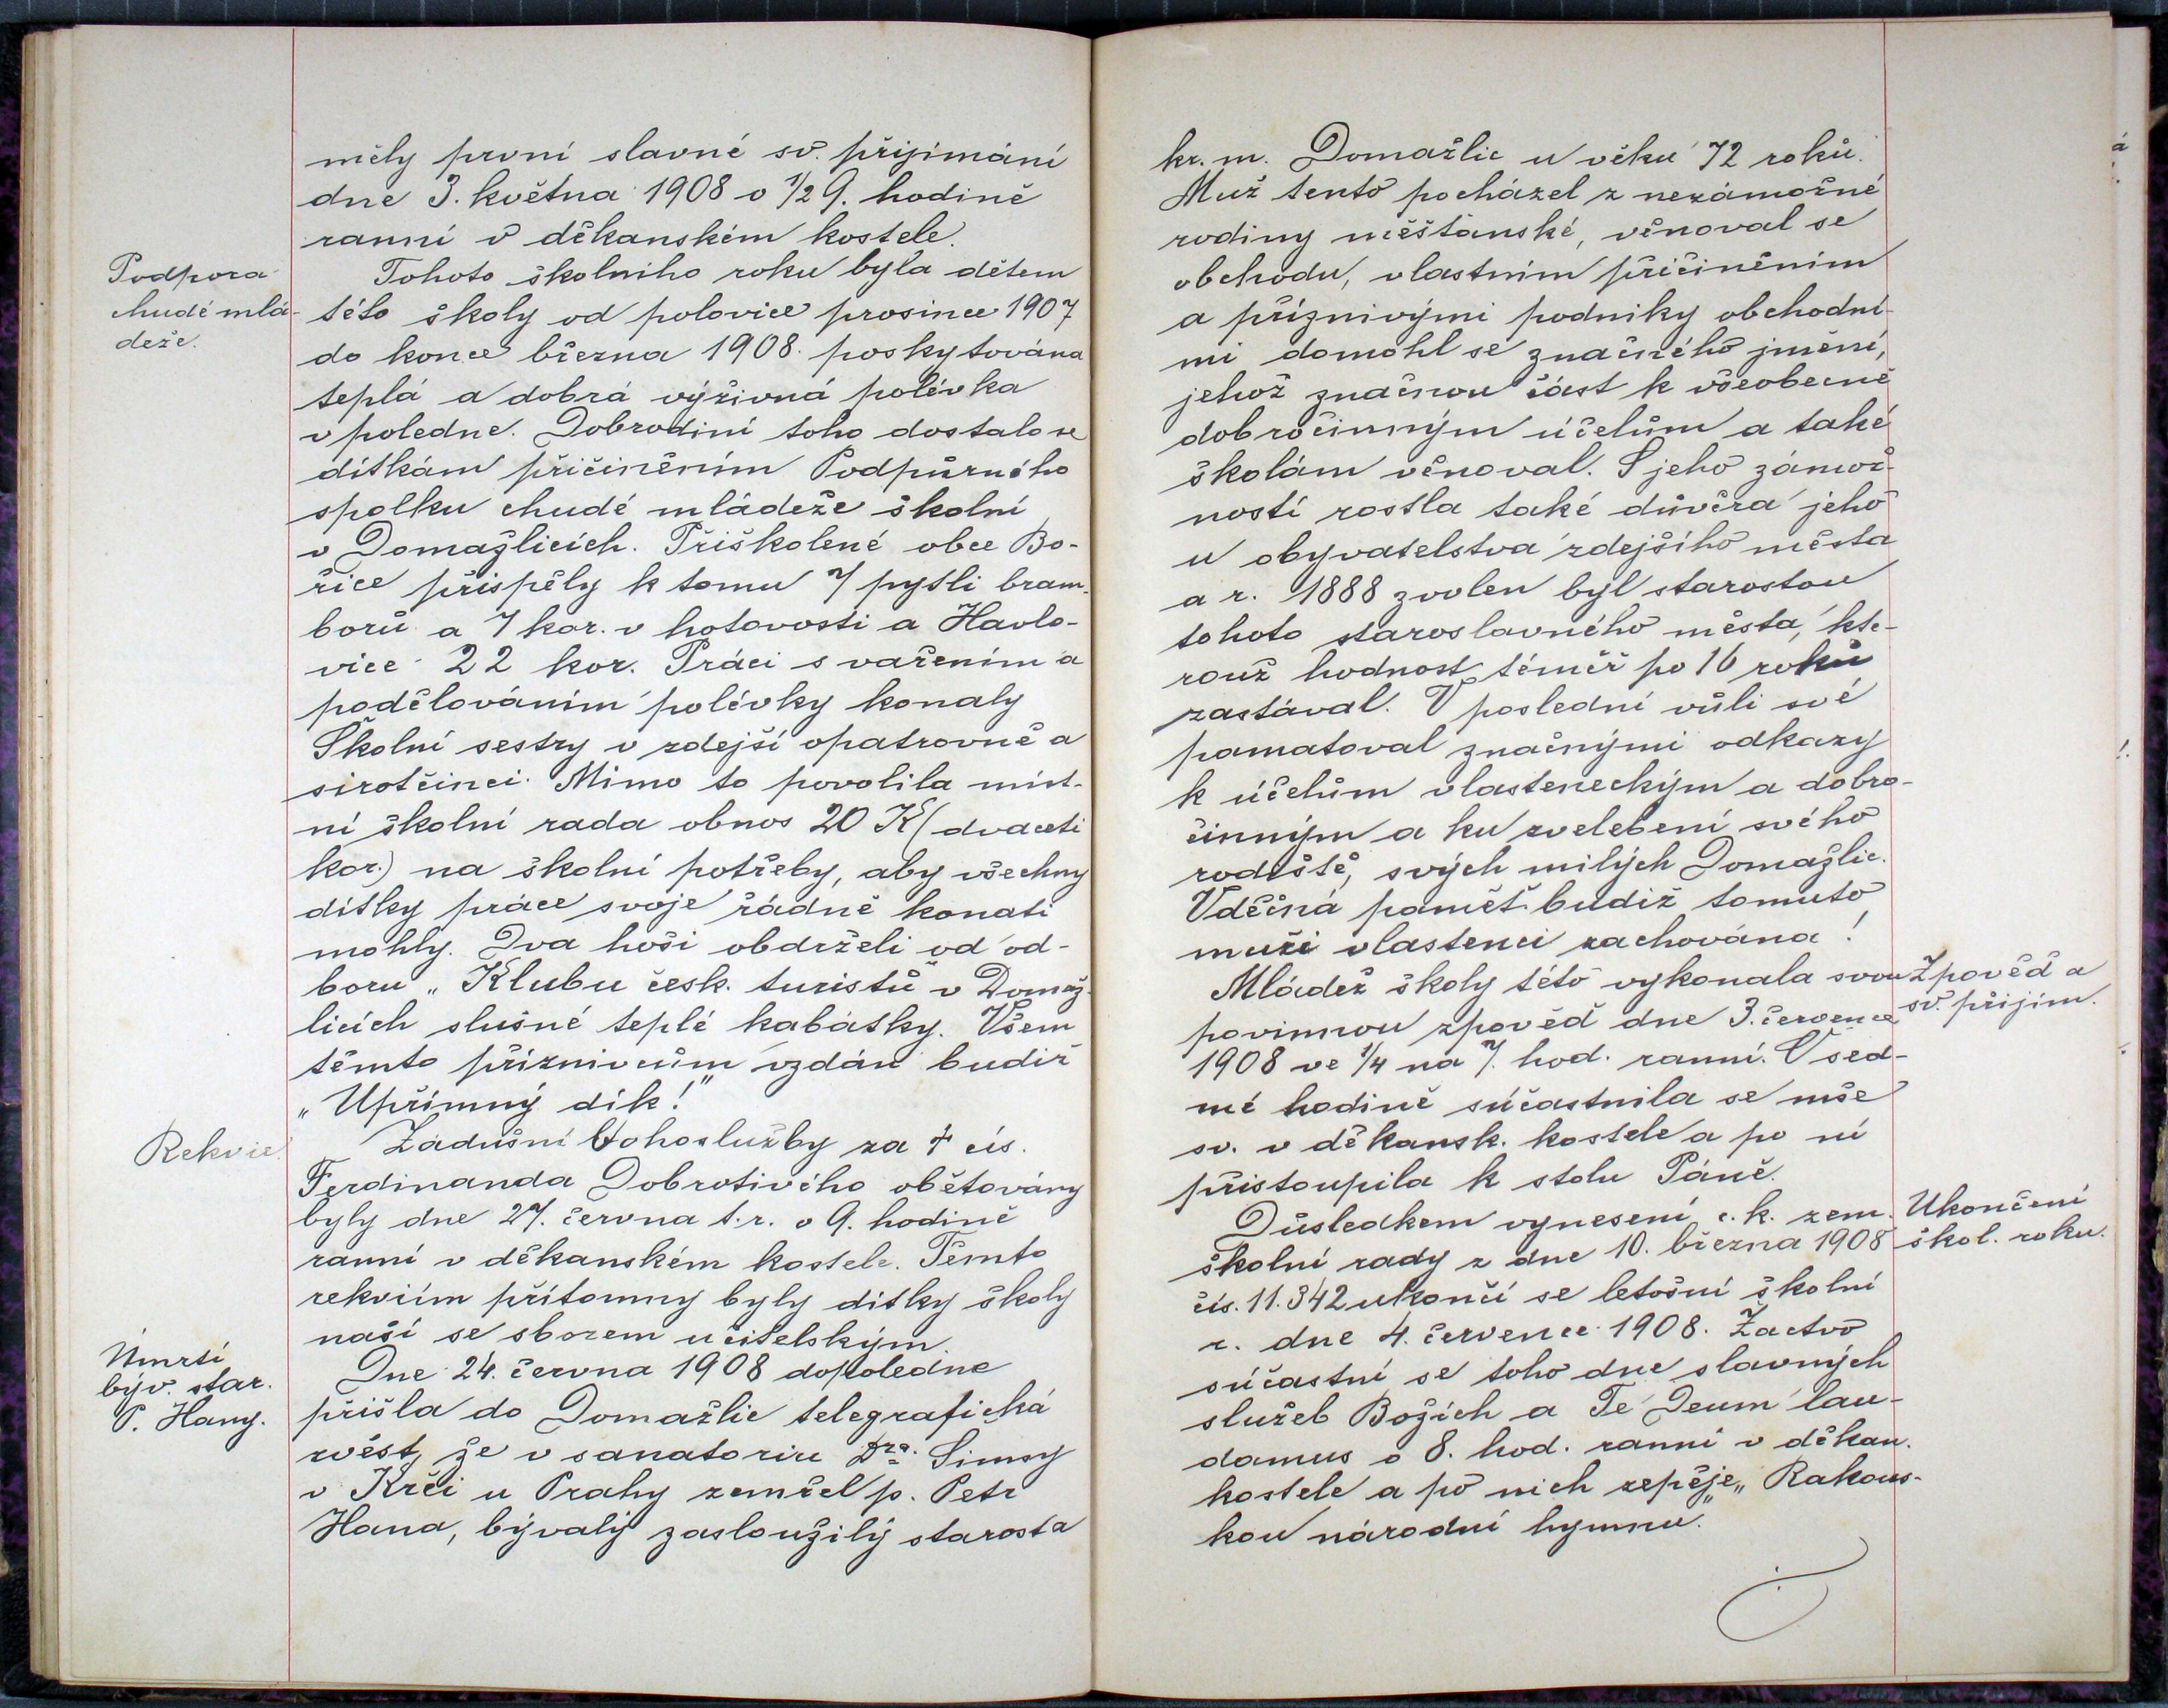 měly první slavné sv. přijímání
dne 3. května 1908 o 1/2 9. hodině
ranní v děkanském kostele.
Podpora
chudé mlá-
deže.
Tohoto školního roku byla dětem
této školy od polovice prosince 1907
do konce března 1908 poskytována
teplá a dobrá výživná polévka
v poledne. Dobrodiní toho dostalo se
dítkám přičiněním Podpůrného
spolku chudé mládeže školní
v Domažlicích. Přiškolené obce Bo-
řice přispěly k tomu 7 pytli bram-
borů a 7 kor. v hotovosti a Havlo-
vice 22 kor. Práci s vařením a
podělováním polévky konaly
Školní sestry v zdejší opatrovně a
sirotčinci. Mimo to povolila míst-
ní školní rada obnos 20 K (dvaceti
kor.) na školní potřeby, aby všechny
dítky práce svoje řádně konati
mohly. Dva hoši obdrželi od od-
boru „Klubu česk. turistů" v Domaž-
licích slušné teplé kabátky. Všem
těmto příznivcům vzdán budiž
„Upřímný dík!"
Rekvie.
Zádušní bohoslužby za † cís.
Ferdinanda Dobrotivého obětovány
byly dne 27. června t. r. o 9. hodině
ranní v děkanském kostele. Těmto
rekviím přítomny byly dítky školy
naší se sborem učitelským.
Úmrtí
býv. star.
P. Hany.
Dne 24. června 1908 dopoledne
přišla do Domažlic telegrafická
zvěst, že v sanatoriu Dra. Simsy
v Krči u Prahy zemřel p. Petr
Hana, bývalý zasloužilý starosta
kr. m. Domažlic u věku 72 roků.
Muž tento pocházel z nezámožné
rodiny měšťanské, věnoval se
obchodu, vlastním přičiněním
a příznivými podniky obchodní-
mi domohl se značného jmění,
jehož značnou část k všeobecně
dobročinným účelům a také
školám věnoval. S jeho zámož-
ností rostla také důvěra jeho
u obyvatelstva zdejšího města
a r. 1888 zvolen byl starostou
tohoto staroslavného města, kte-
rouž hodnost téměř po 16 roků
zastával. V poslední vůli své
pamatoval značnými odkazy
k účelům vlasteneckým a dobro-
činným a ku zvelebení svého
rodiště, svých milých Domažlic.
Vděčná paměť budiž tomuto
muži vlastenci zachována!
Mládež školy této vykonala svou
povinnou zpověď dne 3. července
1908 ve 1/4 na 7. hod. ranní. V sed-
mé hodině súčastnila se mše
sv. v děkansk. kostele a po ní
přistoupila k stolu Páně.
Zpověď a
sv. přijím.
Důsledkem vynesení c. k. zem.
školní rady z dne 10. března 1908
čís. 11.342 ukončí se letošní školní
r. dne 4. července 1908. Žactvo
súčastní se toho dne slavných
služeb Božích a Te Deum lau-
damus o 8. hod. ranní v děkan.
kostele a po nich zapěje „Rakous-
kou národní hymnu."
Ukončení
škol. roku.